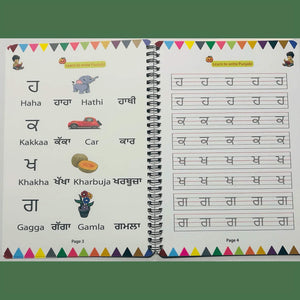 Learn to write Punjabi
ਹ
Haha ਹਾਹਾ Hathi ਹਾਥੀ
ਕ
Kakkaa ਕੱਕਾ Car ਕਾਰ
ਖ
Khakha ਖੱਖਾ Kharbuja ਖਰਬੂਜਾ
ਗ
Gagga ਗੱਗਾ Gamla ਗਮਲਾ
Page 3
Learn to write Punjabi
ਹ ਹ ਹ ਹ ਹ
ਹ ਹ ਹ ਹ ਹ
ਕ ਕ ਕ ਕ ਕ
ਕ ਕ ਕ ਕ ਕ
ਖ ਖ ਖ ਖ ਖ
ਖ ਖ ਖ ਖ ਖ
ਗ ਗ ਗ ਗ ਗ
ਗ ਗ ਗ ਗ ਗ
Page 4